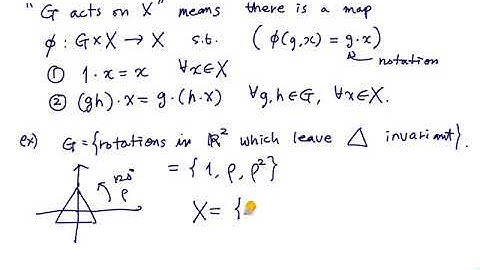 "G acts on X" means there is a map
φ : G×X → X s.t. ( φ(g,x) = g·x )
notation
① 1·x = x ∀x∈X
② (gh)·x = g·(h·x) ∀g,h∈G, ∀x∈X.
ex) G = {rotations in ℝ² which leave △ invariant}.
= { 1, ρ, ρ² }
120°
ρ
X = {